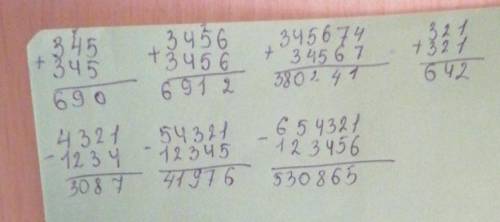 345 3456 345674 321
+ 345 + 3456 + 34567 + 321
690 6912 380241 642
4321 54321 654321
- 1234 - 12345 - 123456
3087 41976 530865